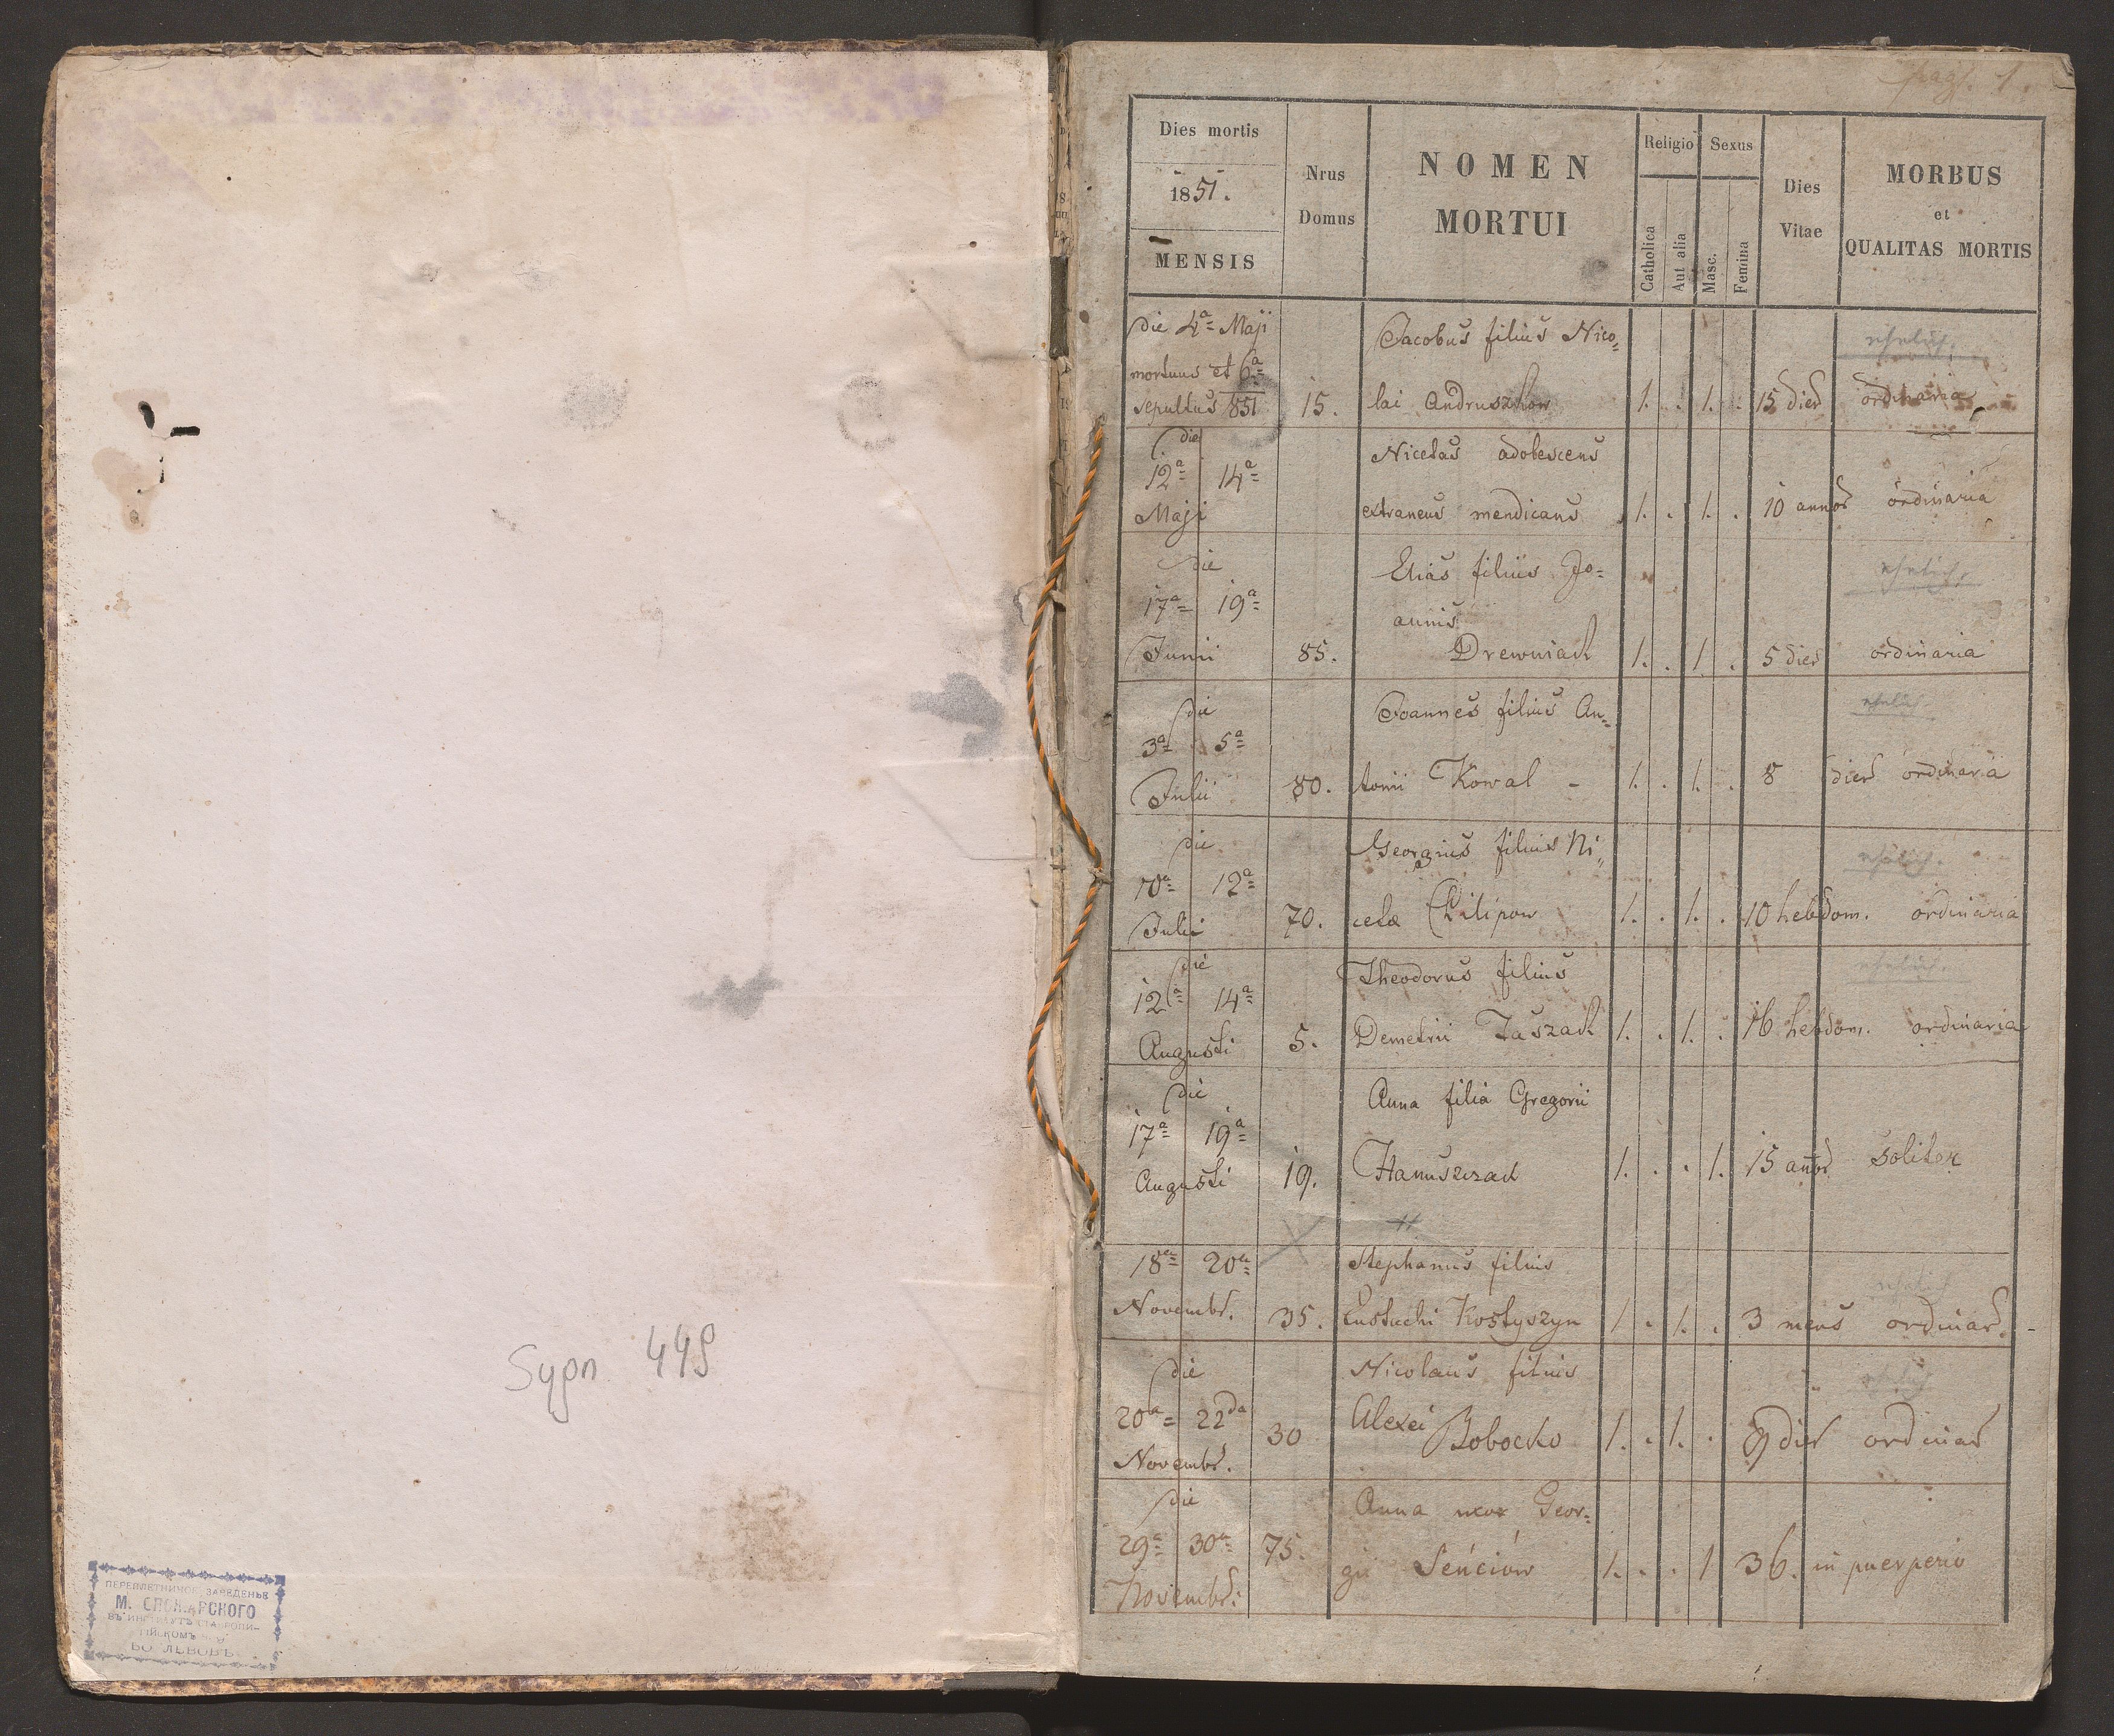 Sygn 449
ПЕРЕПЛЕТНИЧОЕ ЗАВЕДЕНЬЕ
М.
ВО ЛЬВОВѢ
pag. 1.
Dies mortis
1851.
MENSIS
Nrus
Domus
NOMEN
MORTUI
Religio
Catholica
Aut alia
Sexus
Masc.
Femina
Dies
Vitae
MORBUS
et
QUALITAS MORTIS
die 4ª Maji
mortuus et 6ª
sepultus 851 15.
Jacobus filius Nico=
lai Andruszkow 1. . 1. . 15 dier ordinaria
ehelich.
die
12ª 14ª
Maji
Nicetas adolescens
extraneus mendicans 1. . 1. . 10 annor ordinaria
die
17ª 19ª
Junii 85.
Elias filius Jo=
annis
Drewniak 1. . 1 . 5 dier ordinaria
ehelich.
die
3ª 5ª
Julii 80.
Joannes filius An=
tonii Kowal - 1. . 1. . 8 dier ordinaria
ehelich
die
10ª 12ª
Julii 70.
Georgius filius Ni=
cetæ Pilipow 1. . 1. . 10 hebdom. ordinaria
ehelich.
die
12ª 14ª
Augusti 5.
Theodorus filius
Demetrii Taszak 1. . 1. . 16 hebdom. ordinaria
ehelich.
die
17ª 19ª
Augusti 19.
Anna filia Gregorii
Hanuszczak 1. . . 1. 15 annor soliter
18ª 20ª
Novembr. 35.
Stephanus filius
Eustachi Kostyszyn 1. . 1. . 3 mens ordinar. -
ehelich
die
20ª 22da
Novembr. 30
Nicolaus filius
Alexei Bobocko 1. . 1. . 9 dier ordinar
ehelich
die
29ª 30ª
Novembr: 75.
Anna uxor Geor=
gii Seńciów 1. . . 1 36. in puerperio